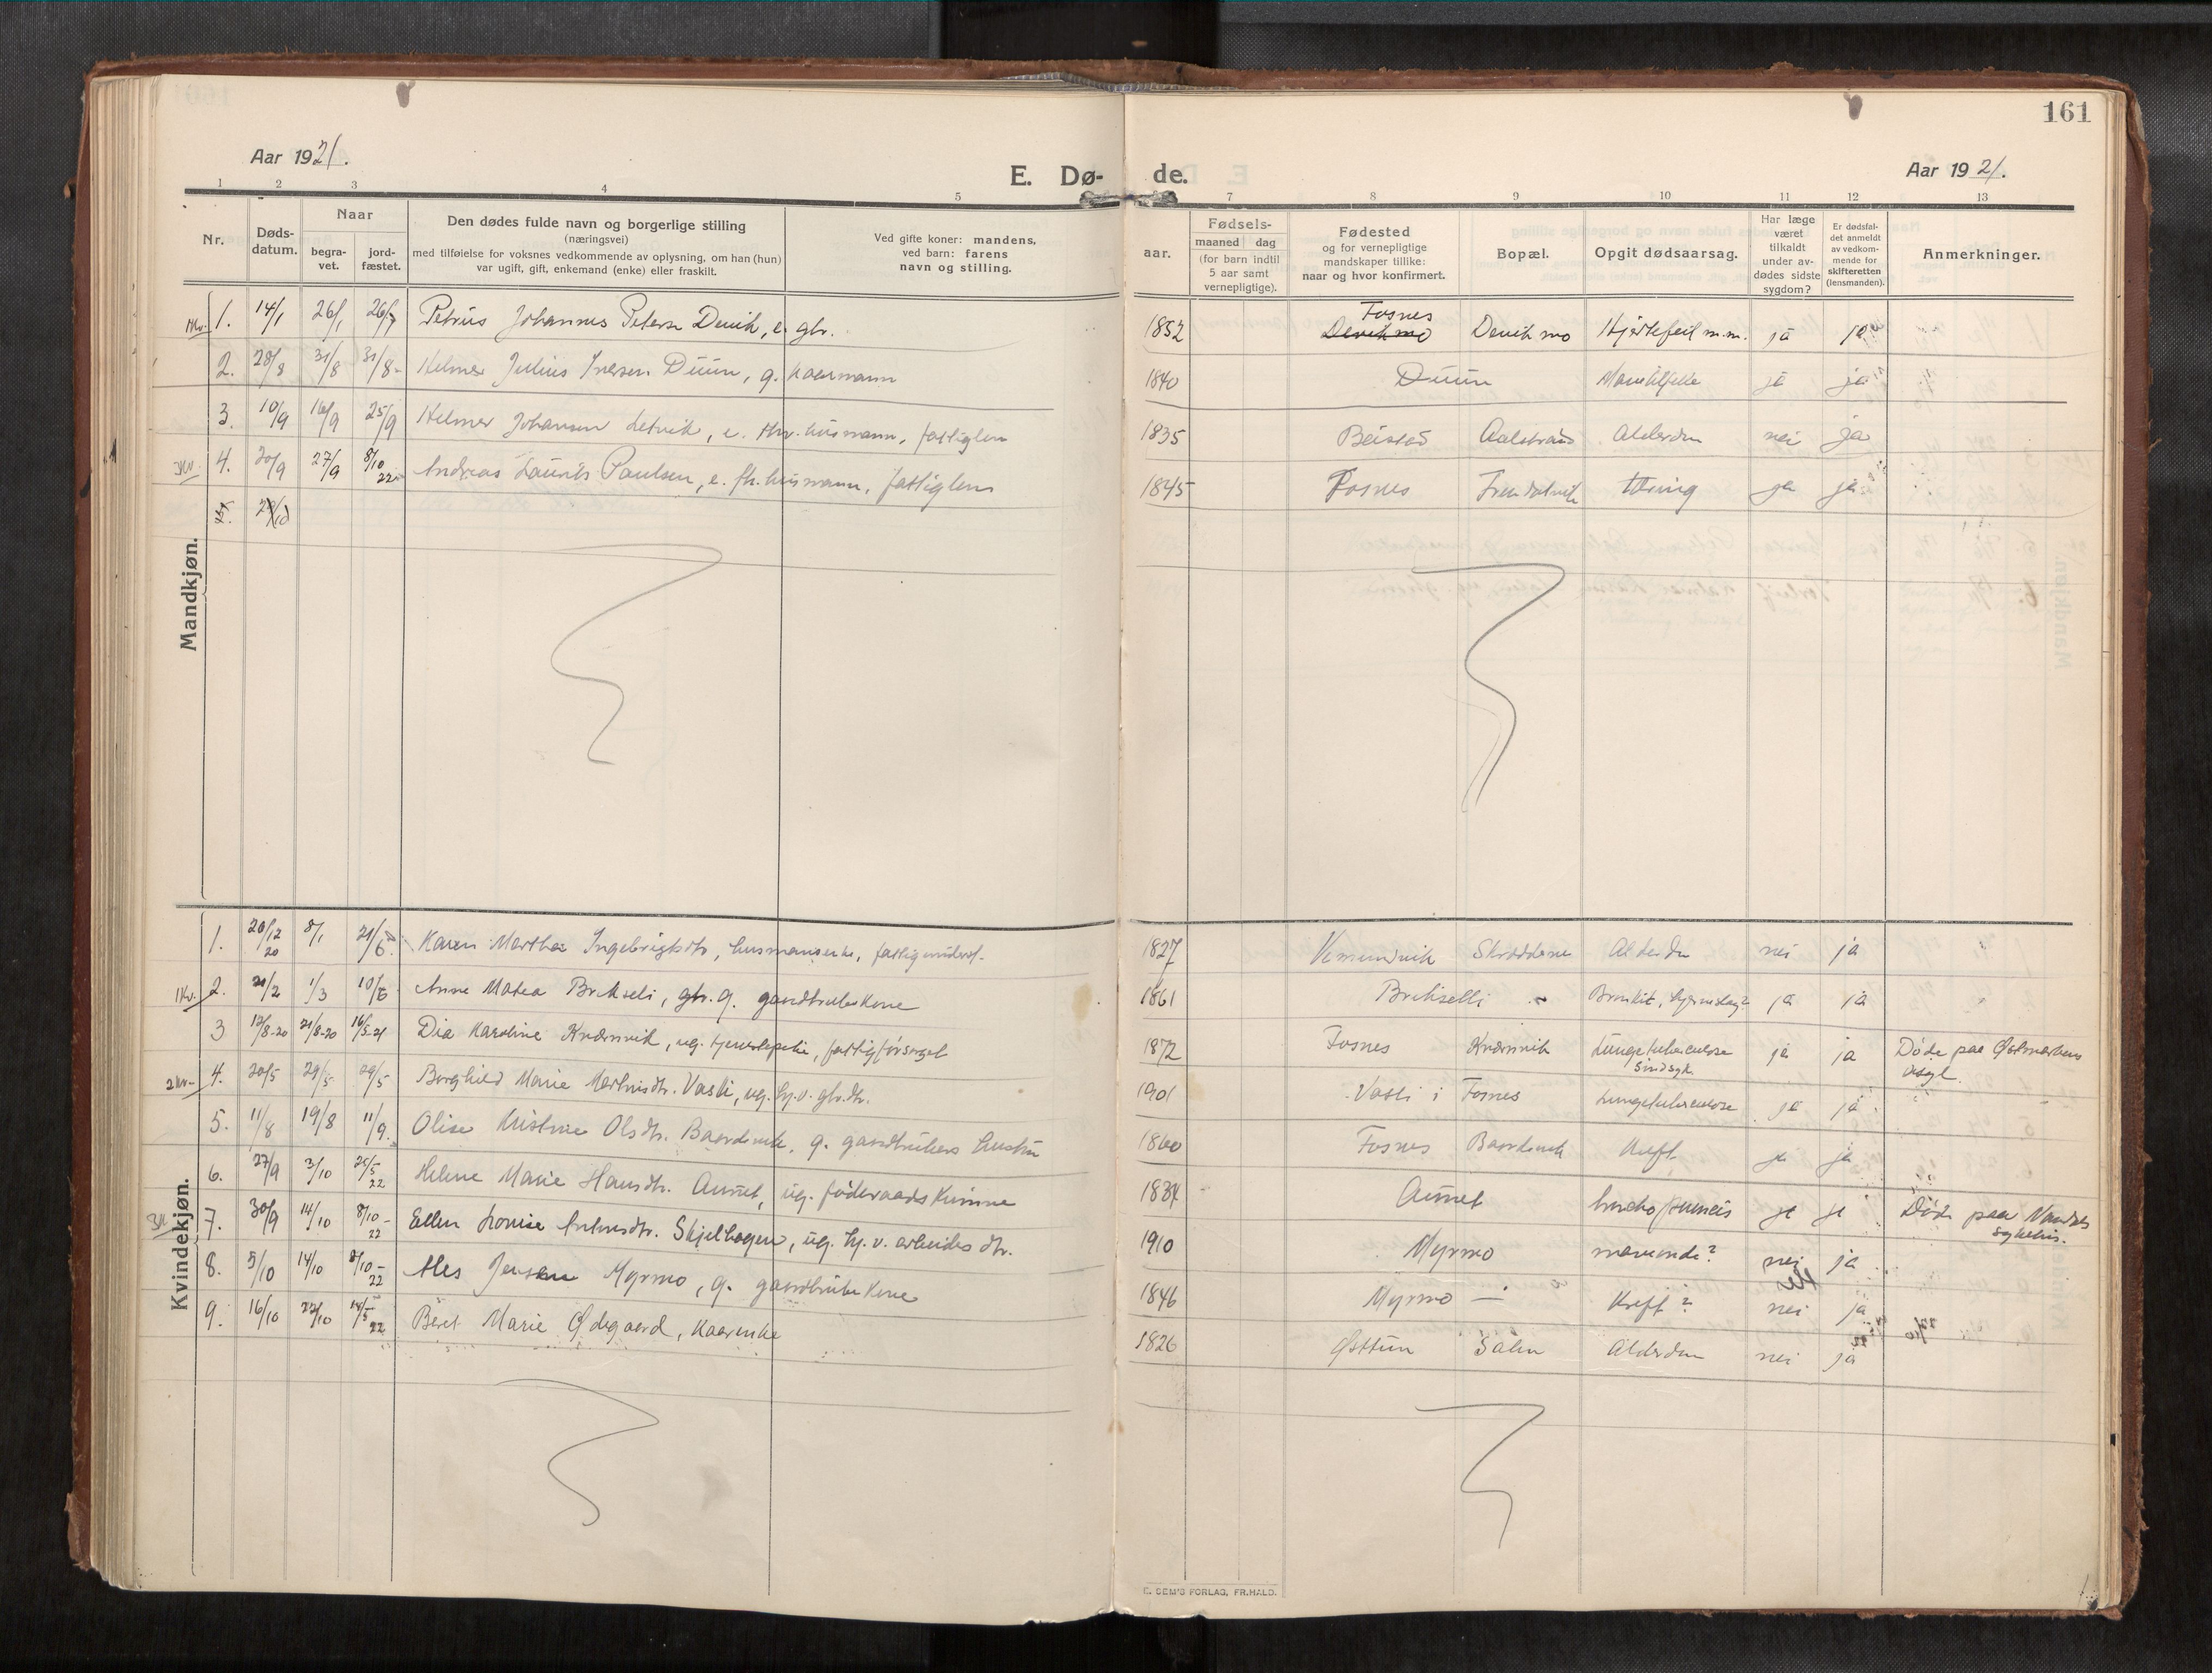 161
Aar 1921.
E. Dø-
de.
Aar 1921.
1 2 3 4 5
7 8 9 10 11 12 13
Nr.
Døds-
datum.
Naar
begra-
vet.
jord-
fæstet.
Den dødes fulde navn og borgerlige stilling
(næringsvei)
med tilføielse for voksnes vedkommende av oplysning, om han (hun)
var ugift, gift, enkemand (enke) eller fraskilt.
Ved gifte koner: mandens,
ved barn: farens
navn og stilling.
aar.
Fødsels-
maaned dag
(for barn indtil
5 aar samt
vernepligtige).
Fødested
og for vernepligtige
mandskaper tillike:
naar og hvor konfirmert.
Bopæl.
Opgit dødsaarsag.
Har læge
været
tilkaldt
under av-
dødes sidste
sygdom?
Er dødsfal-
det anmeldt
av vedkom-
mende for
skifteretten
(lensmanden).
Anmerkninger.
Mandkjøn.
1. 14/1 26/1 Petrus Johannes Peters Devik, e. gbr. 1852 Fosnes Devik mo Devik mo Hjertefeil m.m. ja ja
2. 28/8 31/8 31/8 Helmer Julius Iversen Duun, g. kaarmann 1840 Duun ja ja
3. 10/9 16/9 25/9 Helmer Johansen Letvik, e. husmann, fattiglem 1835 Beistad Aalstrand Alderdom nei ja
4. 20/9 27/9 8/10 22 Andreas Laurits Paulsen, e. fh. husmann, fattiglem 1845 Fosnes Tæring ja ja
5. 29/10
Kvindekjøn.
1. 20/12 20 8/1 21/6 Karen Martha Ingebrigtsdtr, husmansenke, fattigunderst. 1827 Vemundvik Alderdom nei ja
1 Kv. 2. 21/2 1/3 10/6 Anne Matea Brekseli, gbr. g. gaardbrukerkone 1861 Brekselli ja ja
3 12/8-20 21/8-20 16/5-21 Dia Karoline Kværnvik, ug. tjenestepike, fattigforsørget 1872 Fosnes Kværnvik Lungetuberculose
Sindsyk ja ja Døde paa Østmarkens
Asyl.
4. 20/5 29/5 29/5 Borghild Marie Martinsdtr. Vasli, ug. hj.v. gbr.dtr. 1901 Vasli i Fosnes Lungetuberculose ja ja
5. 11/8 19/8 11/9 Olise Kristine Olsdtr. Baardsvik, g. gaardbrukers hustru 1860 Fosnes Baardsvik Kreft ja ja
6. 27/9 3/10 25/5 22 Helene Marie Hansdtr. Aunet, ug. føderaadskvinne 1834 Aunet ja ja Døde paa Namdal
sykehus.
7. 30/9 14/10 8/10-22 Ellen Lovise Antonsdtr. Skjelhagen, ug. hj.v. arbeides dtr. 1910 Myrmo nei ja
8. 5/10 14/10 8/10-22 Ales Jensen Myrmo, g. gaardbrukerkone 1846 Myrmo — Kreft? nei ja
9. 16/10 22/10 14/5 22 Beret Marie Ødegaard, kaarenke 1826 Østtun Salen Alderdom nei ja
E. SEM'S FORLAG, FR.HALD.